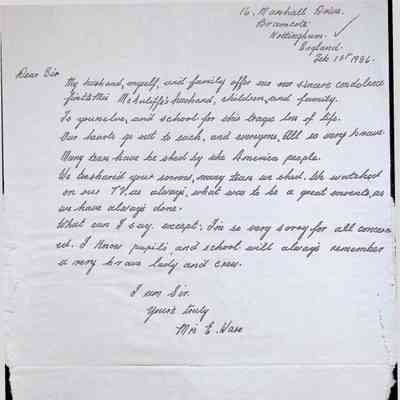 16, Marshall Drive.
Bramcote
Nottingham.
England.
Feb. 1st 1986.
Dear Sir
My husband, myself, and family offer our sincere condolence
Mrs McAuliffe's husband, children, and family.
To yourselves, and school for this tragic loss of life.
Our hearts go out to each, and everyone, All so very brave
Many tears have be shed by the America people.
We shared your sorrows, many tears we shed. We watched
on our T.V, as always, what was to be a great events, as
we have always done.
What can I say except. I'm so very sorry for all concern
ed. I know pupils, and school will always remember
a very brave lady and crew.
I am Sir.
Yours truly
Mrs E.